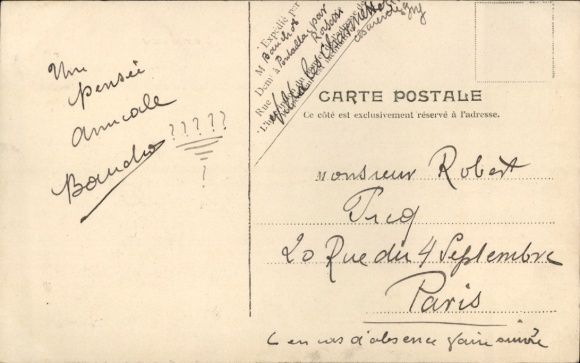 Une
pensée
amicale
Bauchot ?????
?
Expédié par
M Bauchot
Dem à par
Rue
CARTE POSTALE
Ce côté est exclusivement réservé à l'adresse.
Monsieur Robert
Ducq
20 Rue du 4 Septembre
Paris
en cas d'absence faire suivre